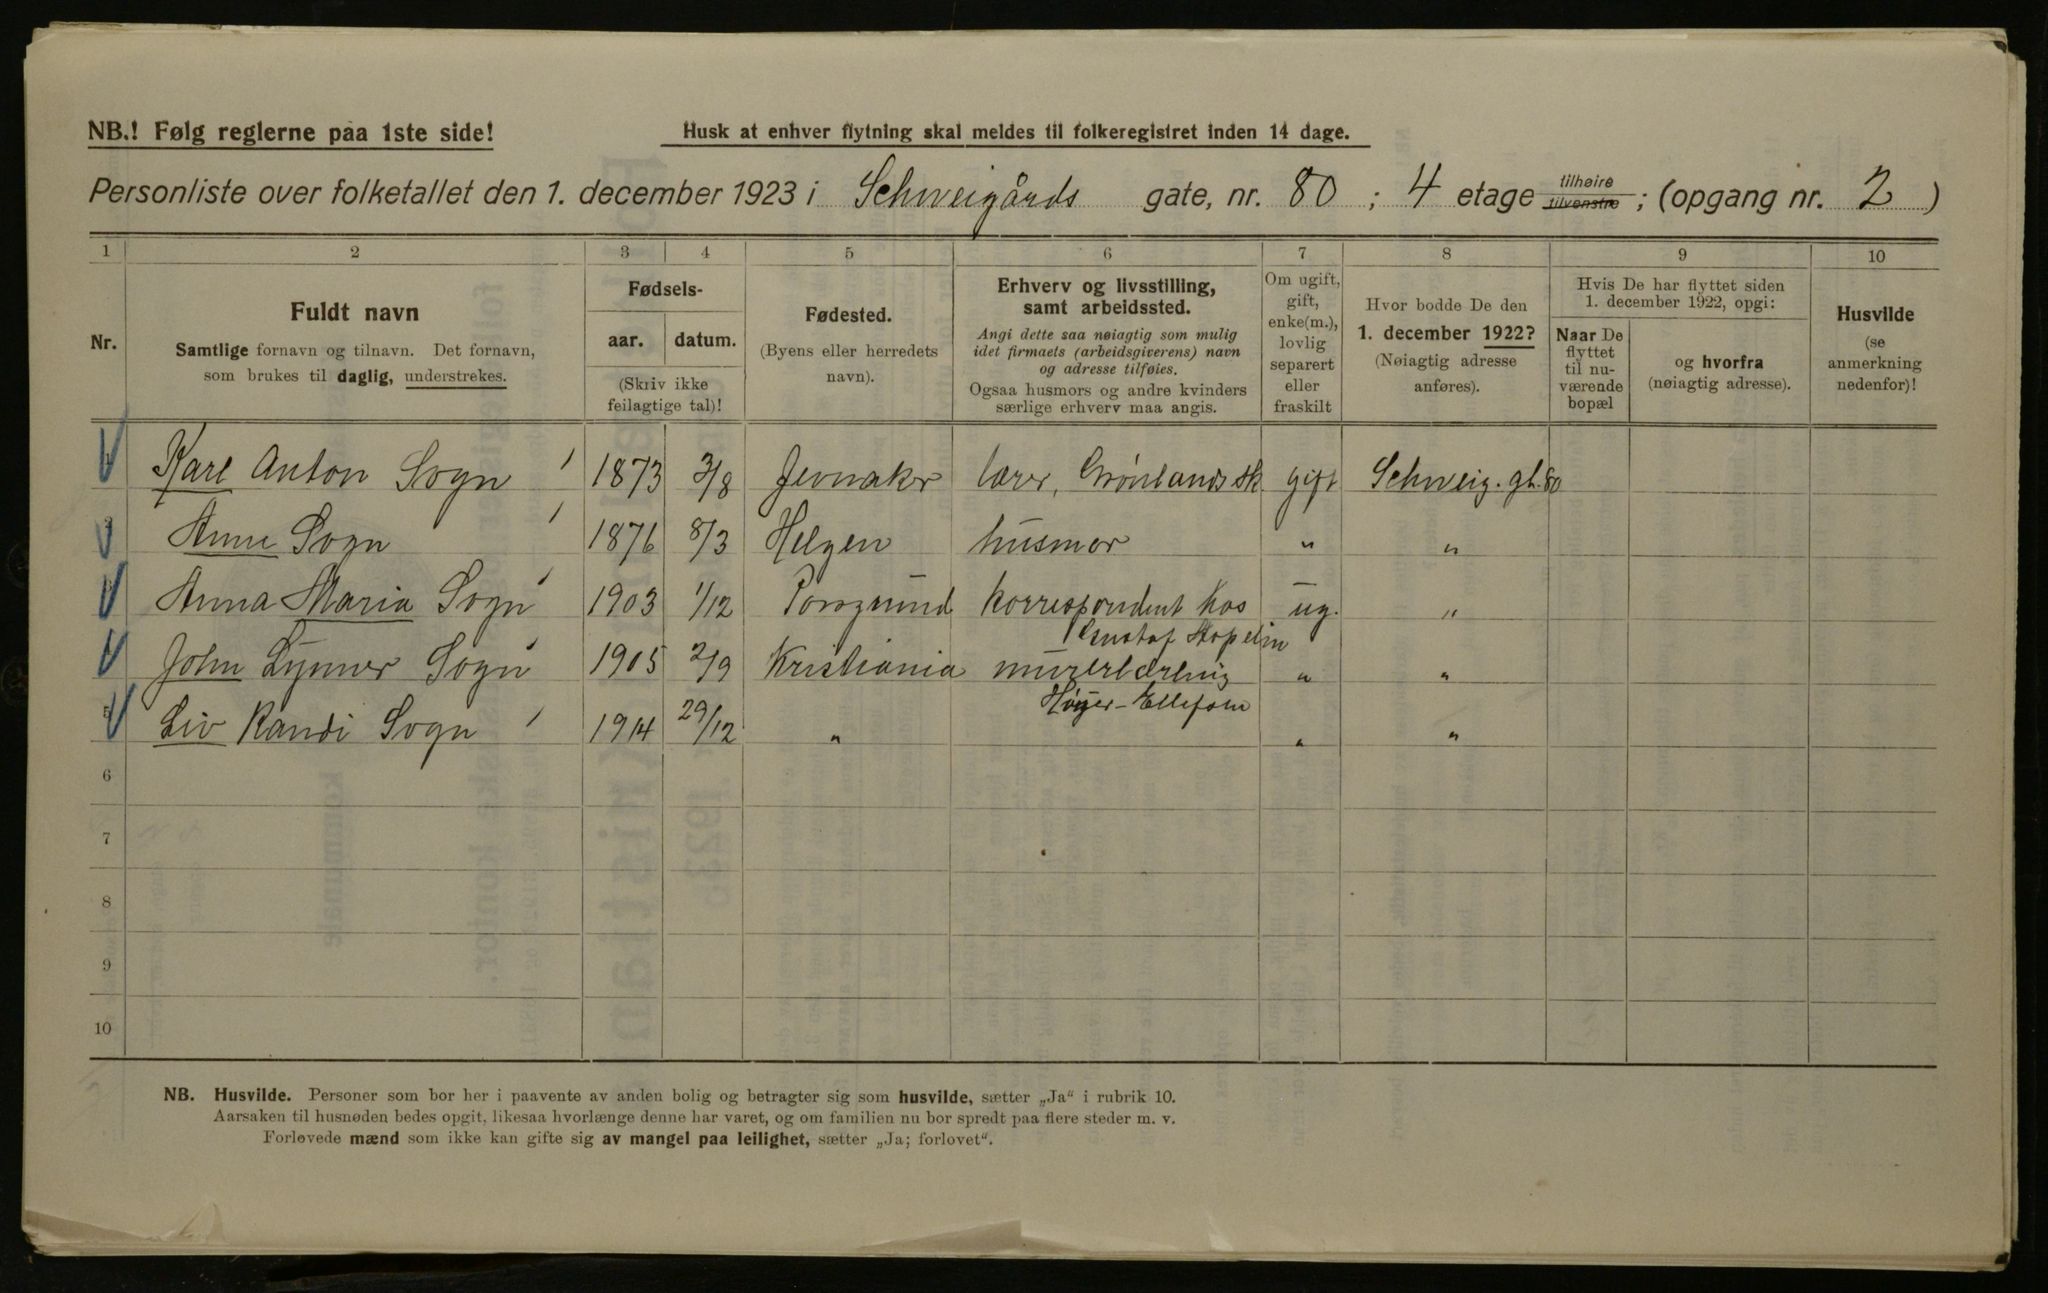 NB.! Følg reglerne paa 1ste side!
Husk at enhver flytning skal meldes til folkeregistret inden 14 dage.
Personliste over folketallet den 1. december 1923 i Schweigårds gate, nr. 80 ; 4 etage tilhøire tilvenstre ; (opgang nr. 2 )
1 2 3 4 5 6 7 8 9 10
Nr.
Fuldt navn
Samtlige fornavn og tilnavn. Det fornavn,
som brukes til daglig, understrekes.
Fødsels-
aar. datum.
(Skriv ikke
feilagtige tal)!
Fødested.
(Byens eller herredets
navn).
Erhverv og livsstilling,
samt arbeidssted.
Angi dette saa nøiagtig som mulig
idet firmaets (arbeidsgiverens) navn
og adresse tilføies.
Ogsaa husmors og andre kvinders
særlige erhverv maa angis.
Om ugift,
gift,
enke(m.),
lovlig
separert
eller
fraskilt
Hvor bodde De den
1. december 1922?
(Nøiagtig adresse
anføres).
Hvis De har flyttet siden
1. december 1922, opgi:
Naar De
flyttet
til nu-
værende
bopæl
og hvorfra
(nøiagtig adresse).
Husvilde
(se
anmerkning
nedenfor)!
Karl Anton Sogn 1873 3/8 Jevnaker lærer, Grønlands sk. gift Schweig. gt. 80
Anne Sogn 1876 8/3 Helgen husmor " "
Anna Maria Sogn 1903 1/12 Porsgrund korrespondent hos ug. "
Gustaf
John Lynner Sogn 1905 2/9 Kristiania murerlærling " "
Høyer-Ellefsen
5 Liv Randi Sogn 1914 29/12 " " "
6
7
8
9
10
NB. Husvilde. Personer som bor her i paavente av anden bolig og betragter sig som husvilde, sætter „Ja“ i rubrik 10.
Aarsaken til husnøden bedes opgit, likesaa hvorlænge denne har varet, og om familien nu bor spredt paa flere steder m. v.
Forlovede mænd som ikke kan gifte sig av mangel paa leilighet, sætter „Ja; forlovet“.